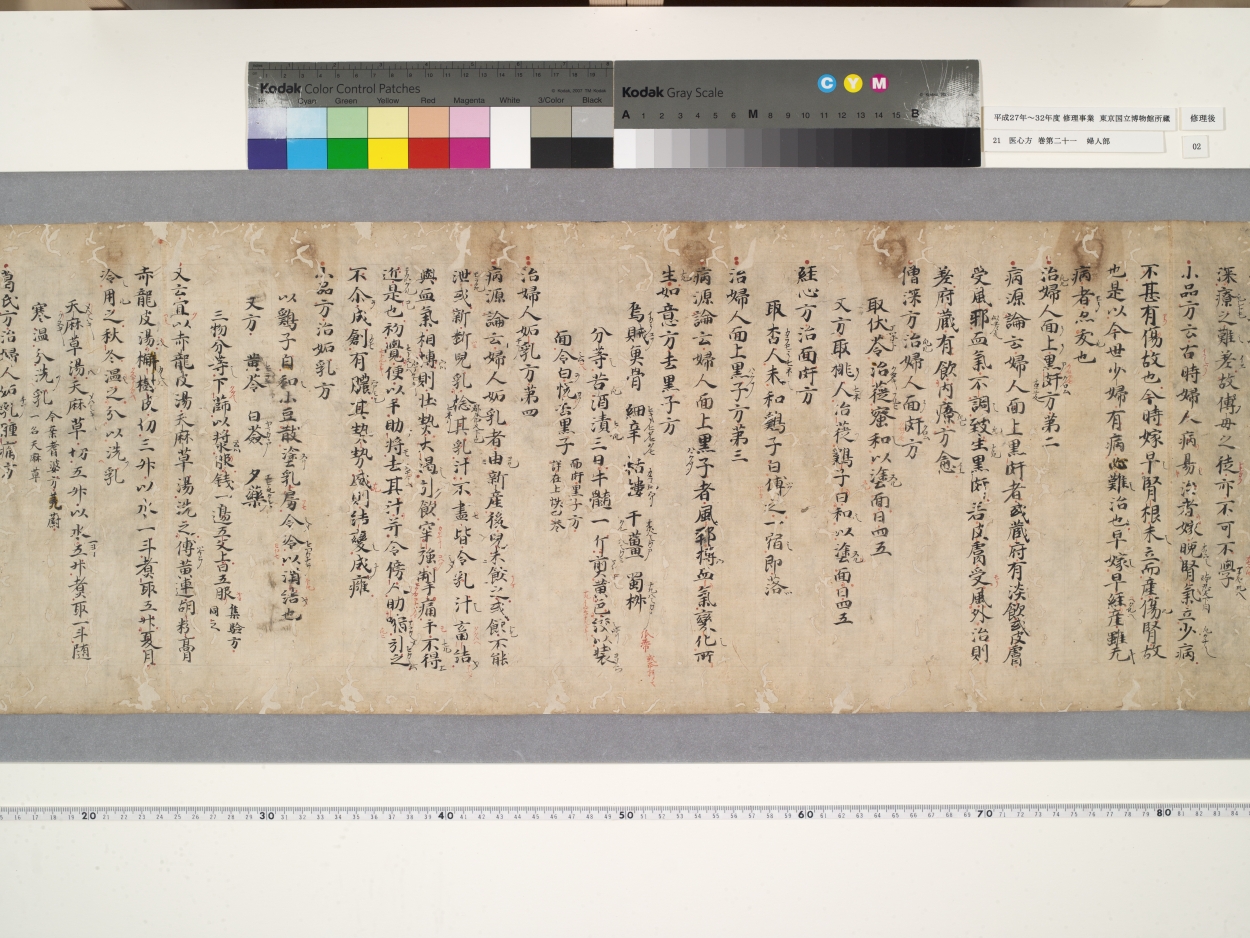 Kodak Color Control Patches
Cyan Green Yellow Red Magenta White 3/Color Black
Kodak Gray Scale
C Y M
A 1 2 3 4 5 6 M 8 9 10 11 12 13 14 15 B
平成27年~32年度 修理事業 東京国立博物館所蔵
修理後
21 医心方 巻第二十一 婦人部
02
深療之難差故傅母之徒亦不可不學
小品方云古時婦人病易治者嫁晩腎氣立少病
不甚有傷故也今時嫁早腎根未立而産傷腎故
也是以今世少婦有病必難治也早嫁早經産雖无
病者亦廢也
治婦人面上黒䵟方第二
病源論云婦人面上黒䵟者或蔵府有淡飲或皮膚
受風邪血氣不調致生黒䵟若皮膚受風外治則
差府蔵有飲内療方愈
僧深方治婦人面䵟方
取伏苓治蓰蜜和以塗面日四五
又方取桃人治蓰鷄子白和以塗面日四五
鮭心方治面䵟方
取杏人末和鷄子白傅之一宿即落
治婦人面上黒子方第三
病源論云婦人面上黒子者風邪搏血氣變化所
生如意方去黒子方
烏賊魚骨 細辛 栝樓 干薑 蜀椒
分等苦酒漬三日牛髓一斤煎黄色絞以裝
面令白悦治黒子
面䵟黒子方
詳在上帙已巻
治婦人妬乳方第四
病源論云婦人妬乳者由新産後兒未飲之或飲不能
泄或新断兒乳捻其乳汁不盡皆令乳汁畜結
與血氣相搏則壯熱大渇引飲牢強掣痛手不得
近是也初覺便以手助將去其汁并令傍人助嗍引之
不尓成創有膿其熱勢盛則結癰成癰
小品方治妬乳方
以鷄子白和小豆散塗乳房令冷以消結也
又方 黄芩 白蘞 夕藥
三物分等下篩以漿服錢一邊五丈吉五服
集驗方
同之
又云宜以赤龍皮湯天麻草湯洗之傅黄連胡粉膏
赤龍皮湯槲樹皮切三升以水一斗煮取五升夏月
冷用之秋冬温之分以洗乳
天麻草湯天麻草切五升以水五升煮取一斗随
寒温分洗乳
葛氏方治婦人妬乳腫痛方
20 30 40 50 60 70 80